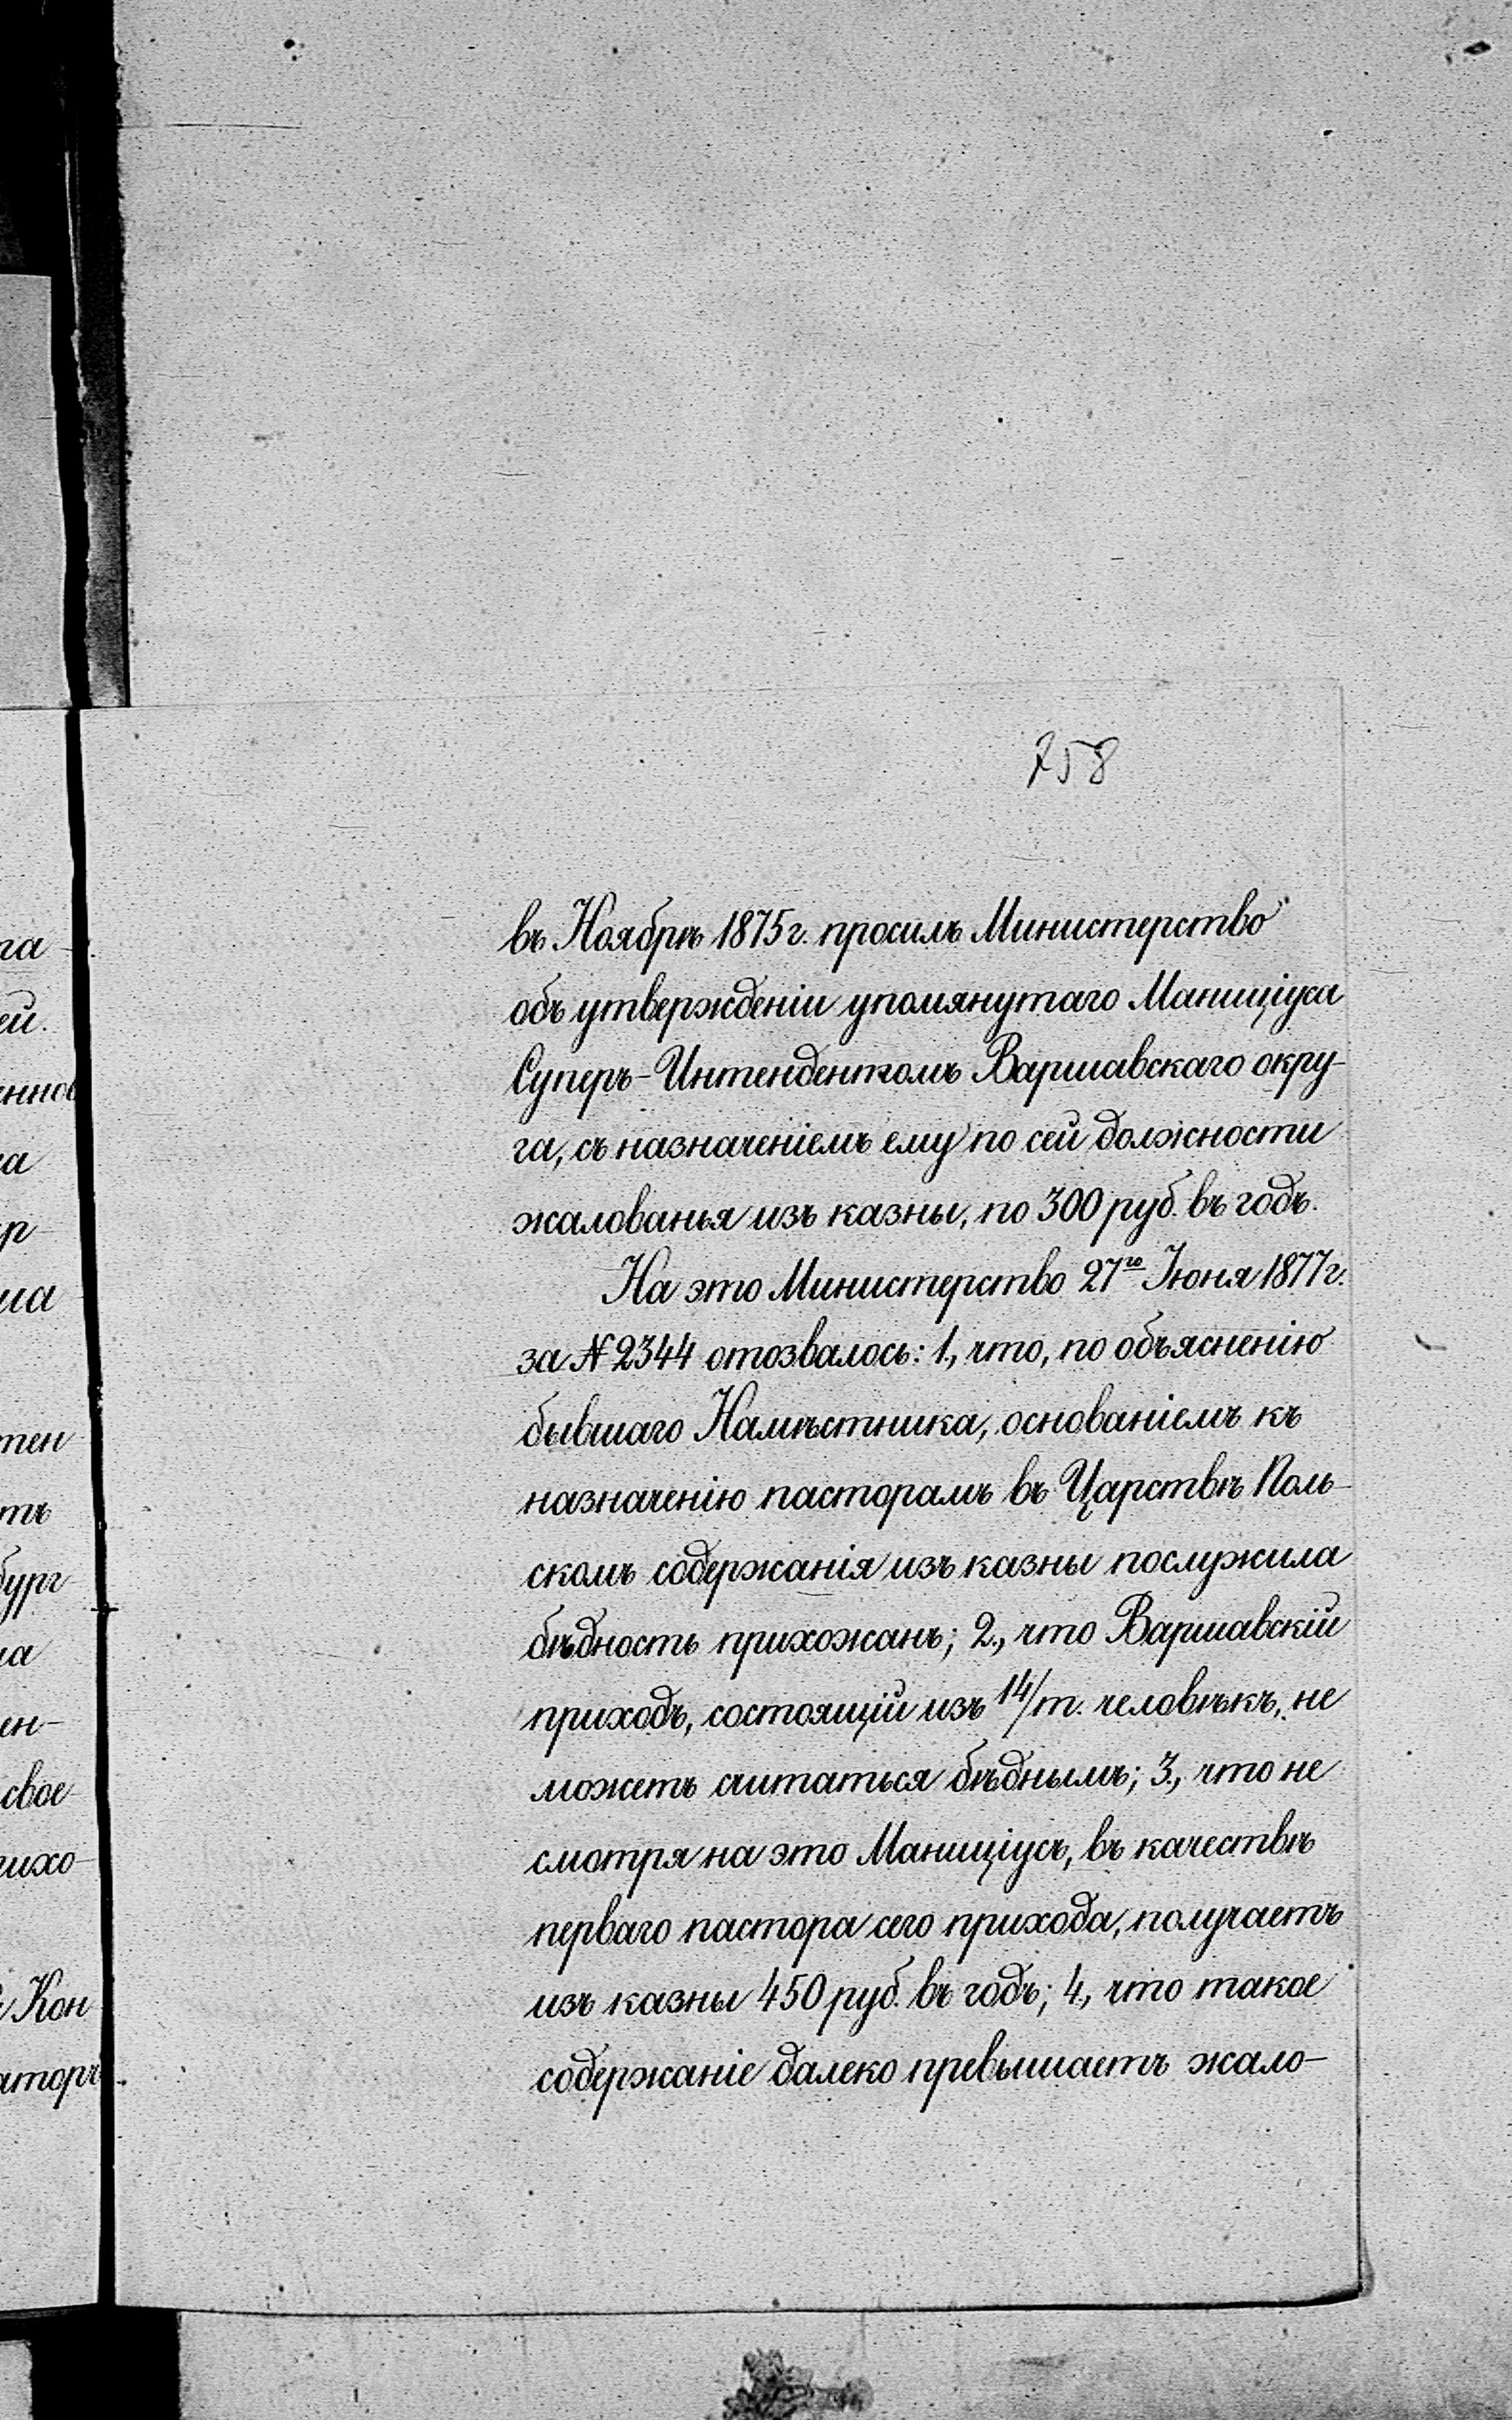 758
въ Ноябрѣ 1875 г. просилъ Министерство
объ утвержденіи упомянутаго Маниціуса
Суперъ-Интендентомъ Варшавскаго окру-
га, съ назначеніемъ ему по сей должности
жалованья изъ казны, по 300 руб. въ годъ.
На это Министерство 27го Іюня 1877 г.
за № 2344 отозвалось: 1., что, по объясненію
бывшаго Намѣстника, основаніемъ къ
назначенію пасторамъ въ Царствѣ Поль-
скомъ содержанія изъ казны послужила
бѣдность прихожанъ; 2., что Варшавскій
приходъ, состоящій изъ 14/т. человѣкъ, не
можетъ считаться бѣднымъ; 3., что не
смотря на это Маниціусъ, въ качествѣ
перваго пастора сего прихода, получаетъ
изъ казны 450 руб. въ годъ; 4., что такое
содержаніе далеко превышаетъ жало-